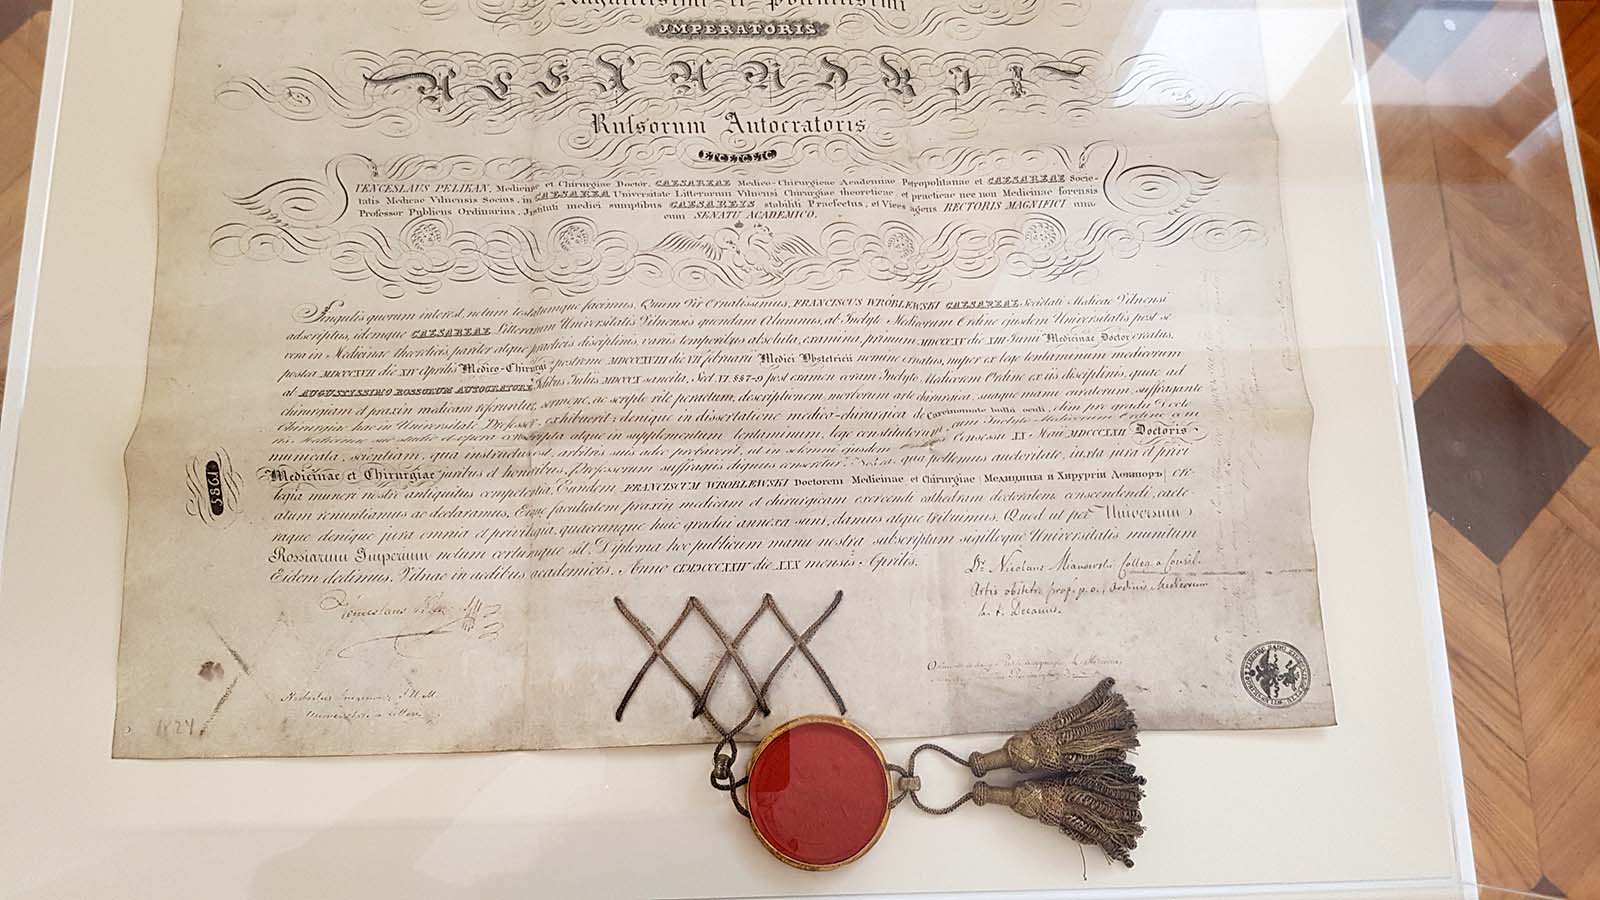 Augustissimi et potentissimi
IMPERATORIS
ALEXANDRI I
Rufsorum Autocratoris
ETC ETC ETC
VENCESLAUS PELIKAN, Medicinae et Chirurgiae Doctor, CAESAREAE Medico-Chirurgicae Academiae Petropolitanae et CAESAREAE Socie-
tatis Medicae Vilnensis Socius, in CAESAREA Universitate Litterarum Vilnensi Chirurgiae theoreticae et practicae nec non Medicinae forensis
Professor Publicus Ordinarius, Instituti medici sumptibus CAESAREIS stabiliti Praefectus, et Vices agens RECTORIS MAGNIFICI una
cum SENATU ACADEMICO.
Singulis quorum interest, notum testatumque facimus, Quum Vir Ornatissimus, FRANCISCUS WROBLEWSKI CAESAREAE Societati Medicae Vilnensi
adscriptus, idemque CAESAREAE Litterarum Universitatis Vilnensis quondam Alumnus, ab Inclyto Medicorum Ordine ejusdem Universitatis post se
rem in Medicinae theoreticis, pariter atque practicis disciplinis, variis temporibus absoluta, examina, primum MDCCCXV die XIII Junii Medicinae Doctor creatus,
postea MDCCCXVII die XIV Aprilis Medico-Chirurgi, postremo MDCCCXVIII die VII februarii Medici Obstetricii nomine ornatus, nuper ex lege tentaminum medicorum
ab AUGUSTISSIMO ROSSORUM AUTOCRATORE Julii MDCCCX sancita, Sect. VI. §§ 7-9 post examen coram Inclyto Medicorum Ordine ex iis disciplinis, quae ad
chirurgiam et praxin medicam referuntur, sermone, ac scripto rite peractum, descriptionem morborum arte chirurgica, suaque manu curatorum, suffragante
Chirurgiae hac in Universitate Professore exhibuerit; denique in dissertatione medico-chirurgica de Carcinomate bulbi oculi, olim pro gradu Docto
ris Medicinae suo studio et opera conscripta atque in supplementum tentaminum, lege constitutorum, cum Inclyto Medicorum Ordine com
municata, scientiam, qua instructus est, arbitris suis adeo probaverit, ut in solemni ejusdem Consessu Maii Doctoris
Medicinae et Chirurgiae juribus et honoribus, Professorum suffragiis dignus censeretur; Nos ea, qua pollemus auctoritate, juxta jura et privi
legia muneri nostro antiquitus competentia, Eundem FRANCISCUM WROBLEWSKI Doctorem Medicinae et Chirurgiae (Медицины и Хирургіи Докторъ) cre-
atum renuntiamus ac declaramus, Eique facultatem praxin medicam et chirurgicam exercendi cathedram doctoralem conscendendi, caete-
raque denique jura omnia et privilegia, quaecunque huic gradui annexa sunt, damus atque tribuimus. Quod ut per Universum
Rossiarum Imperium notum certumque sit, Diploma hoc publicum manu nostra subscriptum sigilloque Universitatis munitum
Eidem dedimus. Vilnae in aedibus academicis. Anno CIƆDCCCXXIV die XXX mensis Aprilis.
Dr. Nicolaus Mianowski Colleg. a Consil.
Artis obstetr. prof. p. o., Ordinis Medicorum
h. t. Decanus.
Venceslaus Pelikan
1824